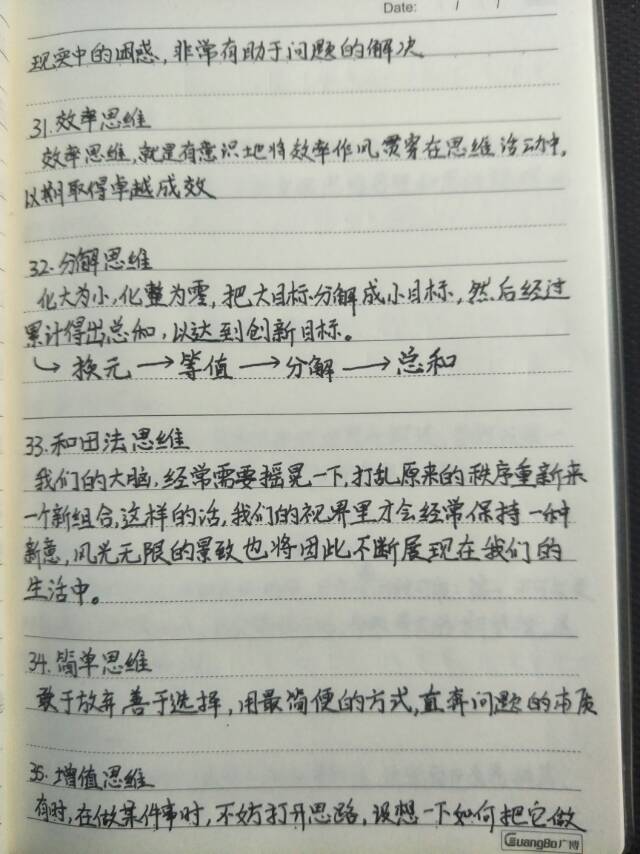 Date: / /
现实中的困惑，非常有助于问题的解决
31.效率思维
效率思维，就是有意识地将效率作风贯穿在思维活动中，
以期取得卓越成效
32.分解思维
化大为小，化整为零，把大目标分解成小目标，然后经过
累计得出总和，以达到创新目标。
↳ 换元→等值→分解→总和
33.和田法思维
我们的大脑，经常需要摇晃一下，打乱原来的秩序重新来
一个新组合，这样的话，我们的视界里才会经常保持一种
新意，风光无限的景致也将因此不断展现在我们的
生活中。
34.简单思维
敢于放弃，善于选择，用最简便的方式，直奔问题的本质
35.增值思维
有时，在做某件事时，不妨打开思路，设想一下如何把它做
GuangBo广博